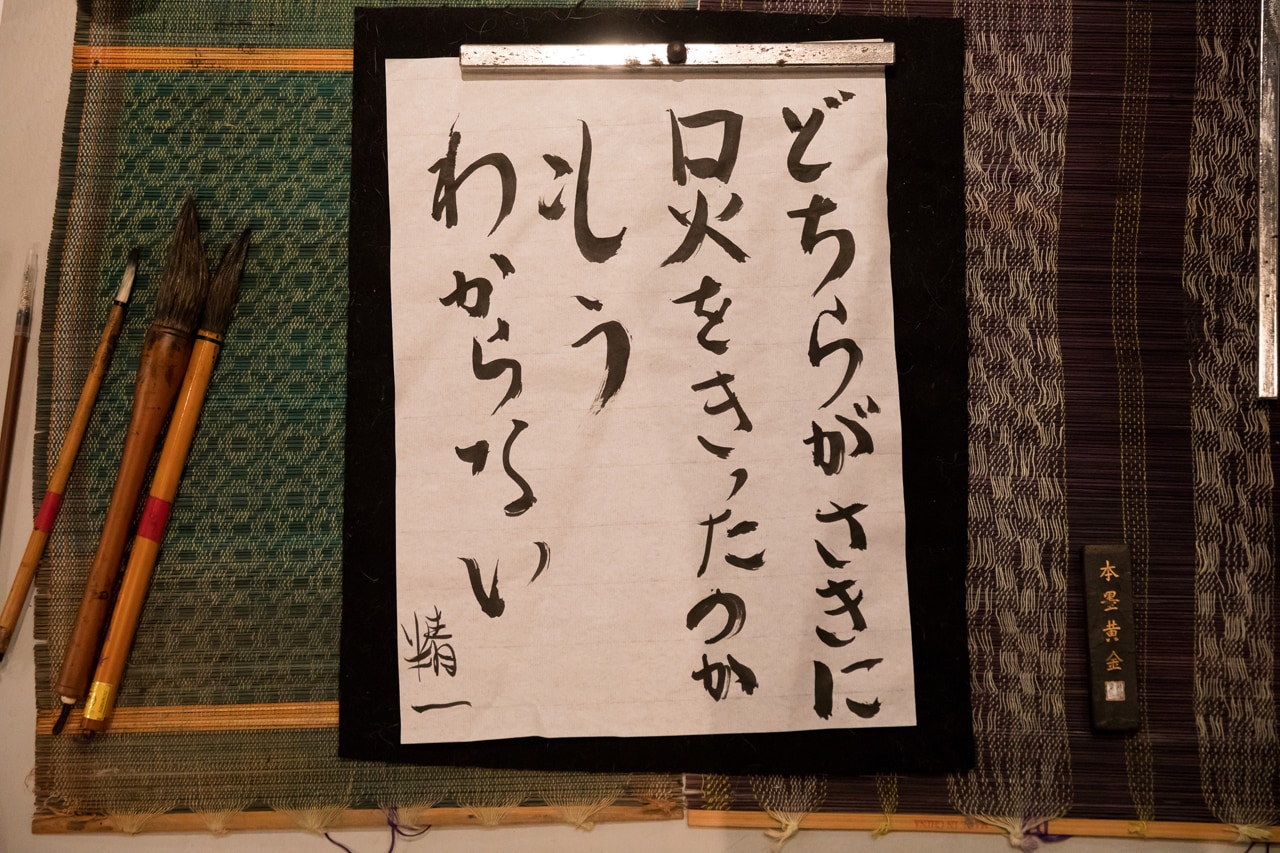 どちらがさきに
口火をきったのか
もう
わからない
精一
本墨黄金